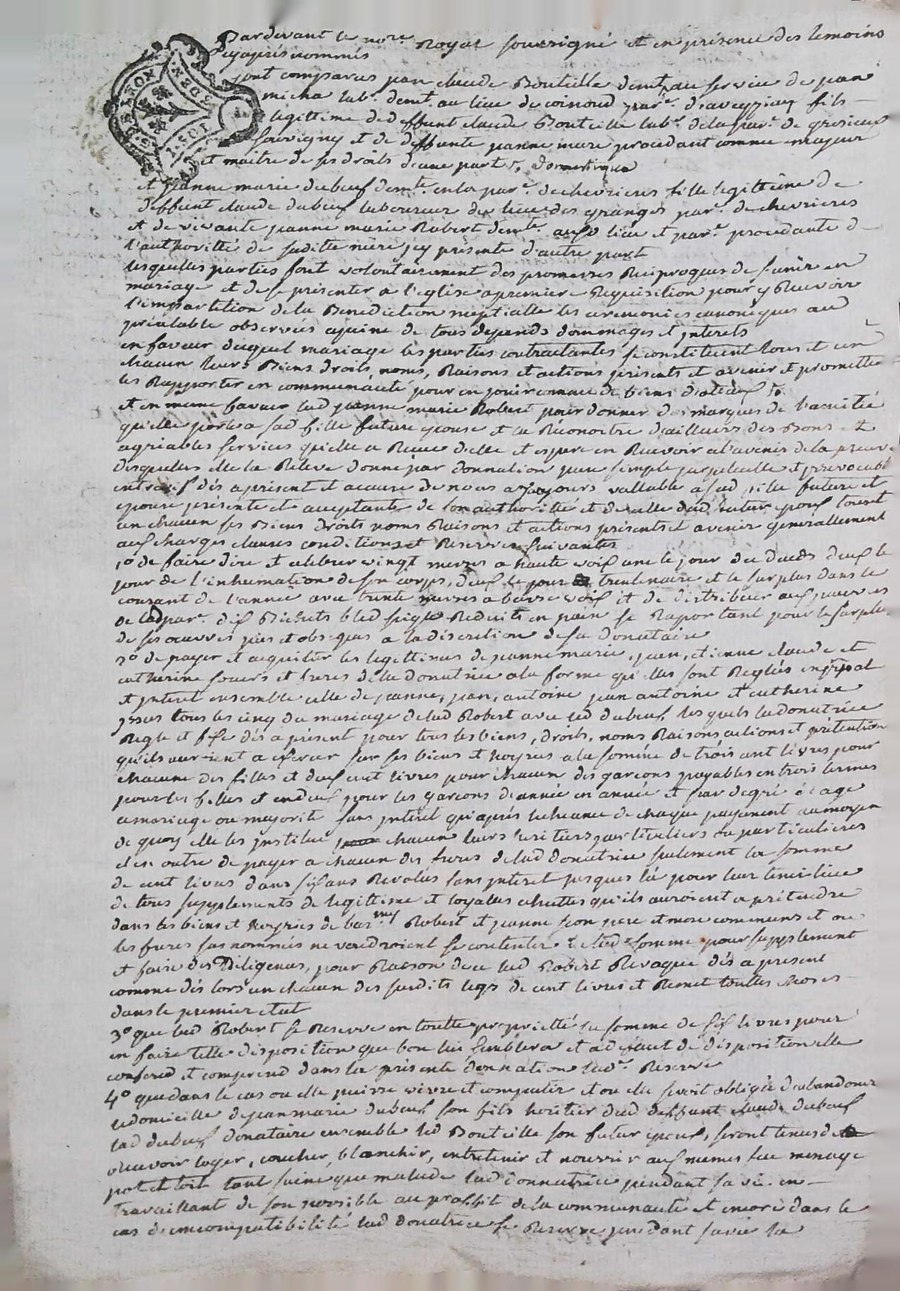 Pardevant le nore. Royal soussigné et en présence des temoins
cyaprès nommés
sont comparus jean claude Bouteille demt. au service de jean
micha labr. demt. au lieu de parr. d'aveyzieu fils
legittime de deffunt claude Bouteille labr. de la parr. de grezieux
souvigny et de deffunte jeanne mure procedant comme majeur
et maitre de ses droits d'une part, domestique
et jeanne marie duboeuf demte. en la parr. de chevrieres fille legittime de
deffunt claude duboeuf laboureur du lieu des granges parr. de chevrieres
et de vivante jeanne marie Robert demte. aud. lieu et parr. procedante de
l'authorité de saditte mere icy présente d'autre part
lesquelles parties font volontairement des promesses Réciproques de s'unir en
mariage et de se présenter a l'eglise a premiere Requisition pour y Recevoir
l'impartition de la Benediction nuptialle les ceremonies canoniques au
préalable observées a peine de tous depends dommages et interets
en faveur duquel mariage les parties contractantes se constituent tous et un
chacun leurs Biens droits, noms, Raisons et actions présents et avenir et promettent
les Rapporter en communauté pour en jouir comme de biens
et en meme faveur lad. jeanne marie Robert pour donner des marques de l'amitié
qu'elle porte a sad. fille future epouse et la Réconoitre d'ailleurs des Bons et
agreables services qu'elle a Recue d'elle et espere en Recevoir a l'avenir de la preuve
desquelles elle la Releve donne par donnation pure simple perpetuelle et irrevocable
entrevifs dés a présent et acause de nous a toujours vallable a sad. fille future et
epouse présente et acceptante de son authorité et de celle dud. futur epoux tout et
un chacun ses Biens droits noms Raisons et actions présents et avenir generallement
aux charges clauses conditions et Reserves suivantes
1o. de faire dire et celebrer vingt messes a haute voix une le jour du deces deux le
jour de l'inhumation de son corps, deux le jour trentenaire et le surplus dans le
courant de l'année avec trente messes a basse voix et de distribuer aux pauvres
de lad. parr. dix Bichets bled seigle Reduits en pain se Raportant pour le surplus
de ses oeuvres pies et obseques a la discretion de sa donataire
2o. de payer et acquitter les legittimes de jeanne marie, jean, etienne claude et
catherine soeurs et freres de la donatrice a la forme qu'elles sont Reglés en pal.
et interet ensemble celle de jeanne, jean, antoine jean antoine et catherine
issus tous les cinq du mariage de lad. Robert avec led. duboeuf lesquels la donatrice
Regle et fixe dés a présent pour tous les biens, droits, noms Raisons actions et prétention
qu'ils auroient a exercer sur ses biens et hoyries a la somme de trois cent livres pour
chacune des filles et deux cent livres pour chacun des garcons payables en trois termes
pour les filles et en deux pour les garcons d'année en année et par degré d'age
a mariage ou majorité sans intéret qu'après l'echeance de chaque payement au moyen
de quoy elle les institue chacun leurs heritiers particuliers ou particulieres
et en outre de payer a chacun des freres de lad. donatrice seulement la somme
de cent livres dans six ans Revolus sans interet jusques là pour leur tenir lieu
de tous supplements de legittime et loyalles echuttes qu'ils auroient a prétendre
dans les biens et hoyries de Robert et jeanne son pere et mere communs et ou
les freres sus nommés ne voudroient se contenter de lad. somme pour supplement
et faire des Diligences, pour Raison de ce lad. Robert Revoque dés a present
comme dés lors un chacun des susdits legs de cent livres et Remet touttes choses
dans le premier etat
3o. que lad. Robert se Reserve en toutte propriétté la somme de six livres pour
en faire telle disposition que bon lui semblera et a deffaut de disposition elle
confond et comprend dans la présente donnation lade. Reserve
4o. que dans le cas ou elle puisse vivre et compatir et ou elle seroit obligée d'abandonner
le domicille de jean marie duboeuf son fils heritier dud. deffunt claude duboeuf
lad. duboeuf donataire ensemble led. Bouteille son futur epoux, seront tenus de la
Recevoir loger, coucher, blanchir, entretenir et nourrir aux memes feu menage
pot et toit tant saine que malade lad. donnatrice pendant sa vie en
travaillant de son possible au proffit de la communauté et encore dans le
cas d'incompatibilité lad. donatrice se Reserve pendant sa vie la